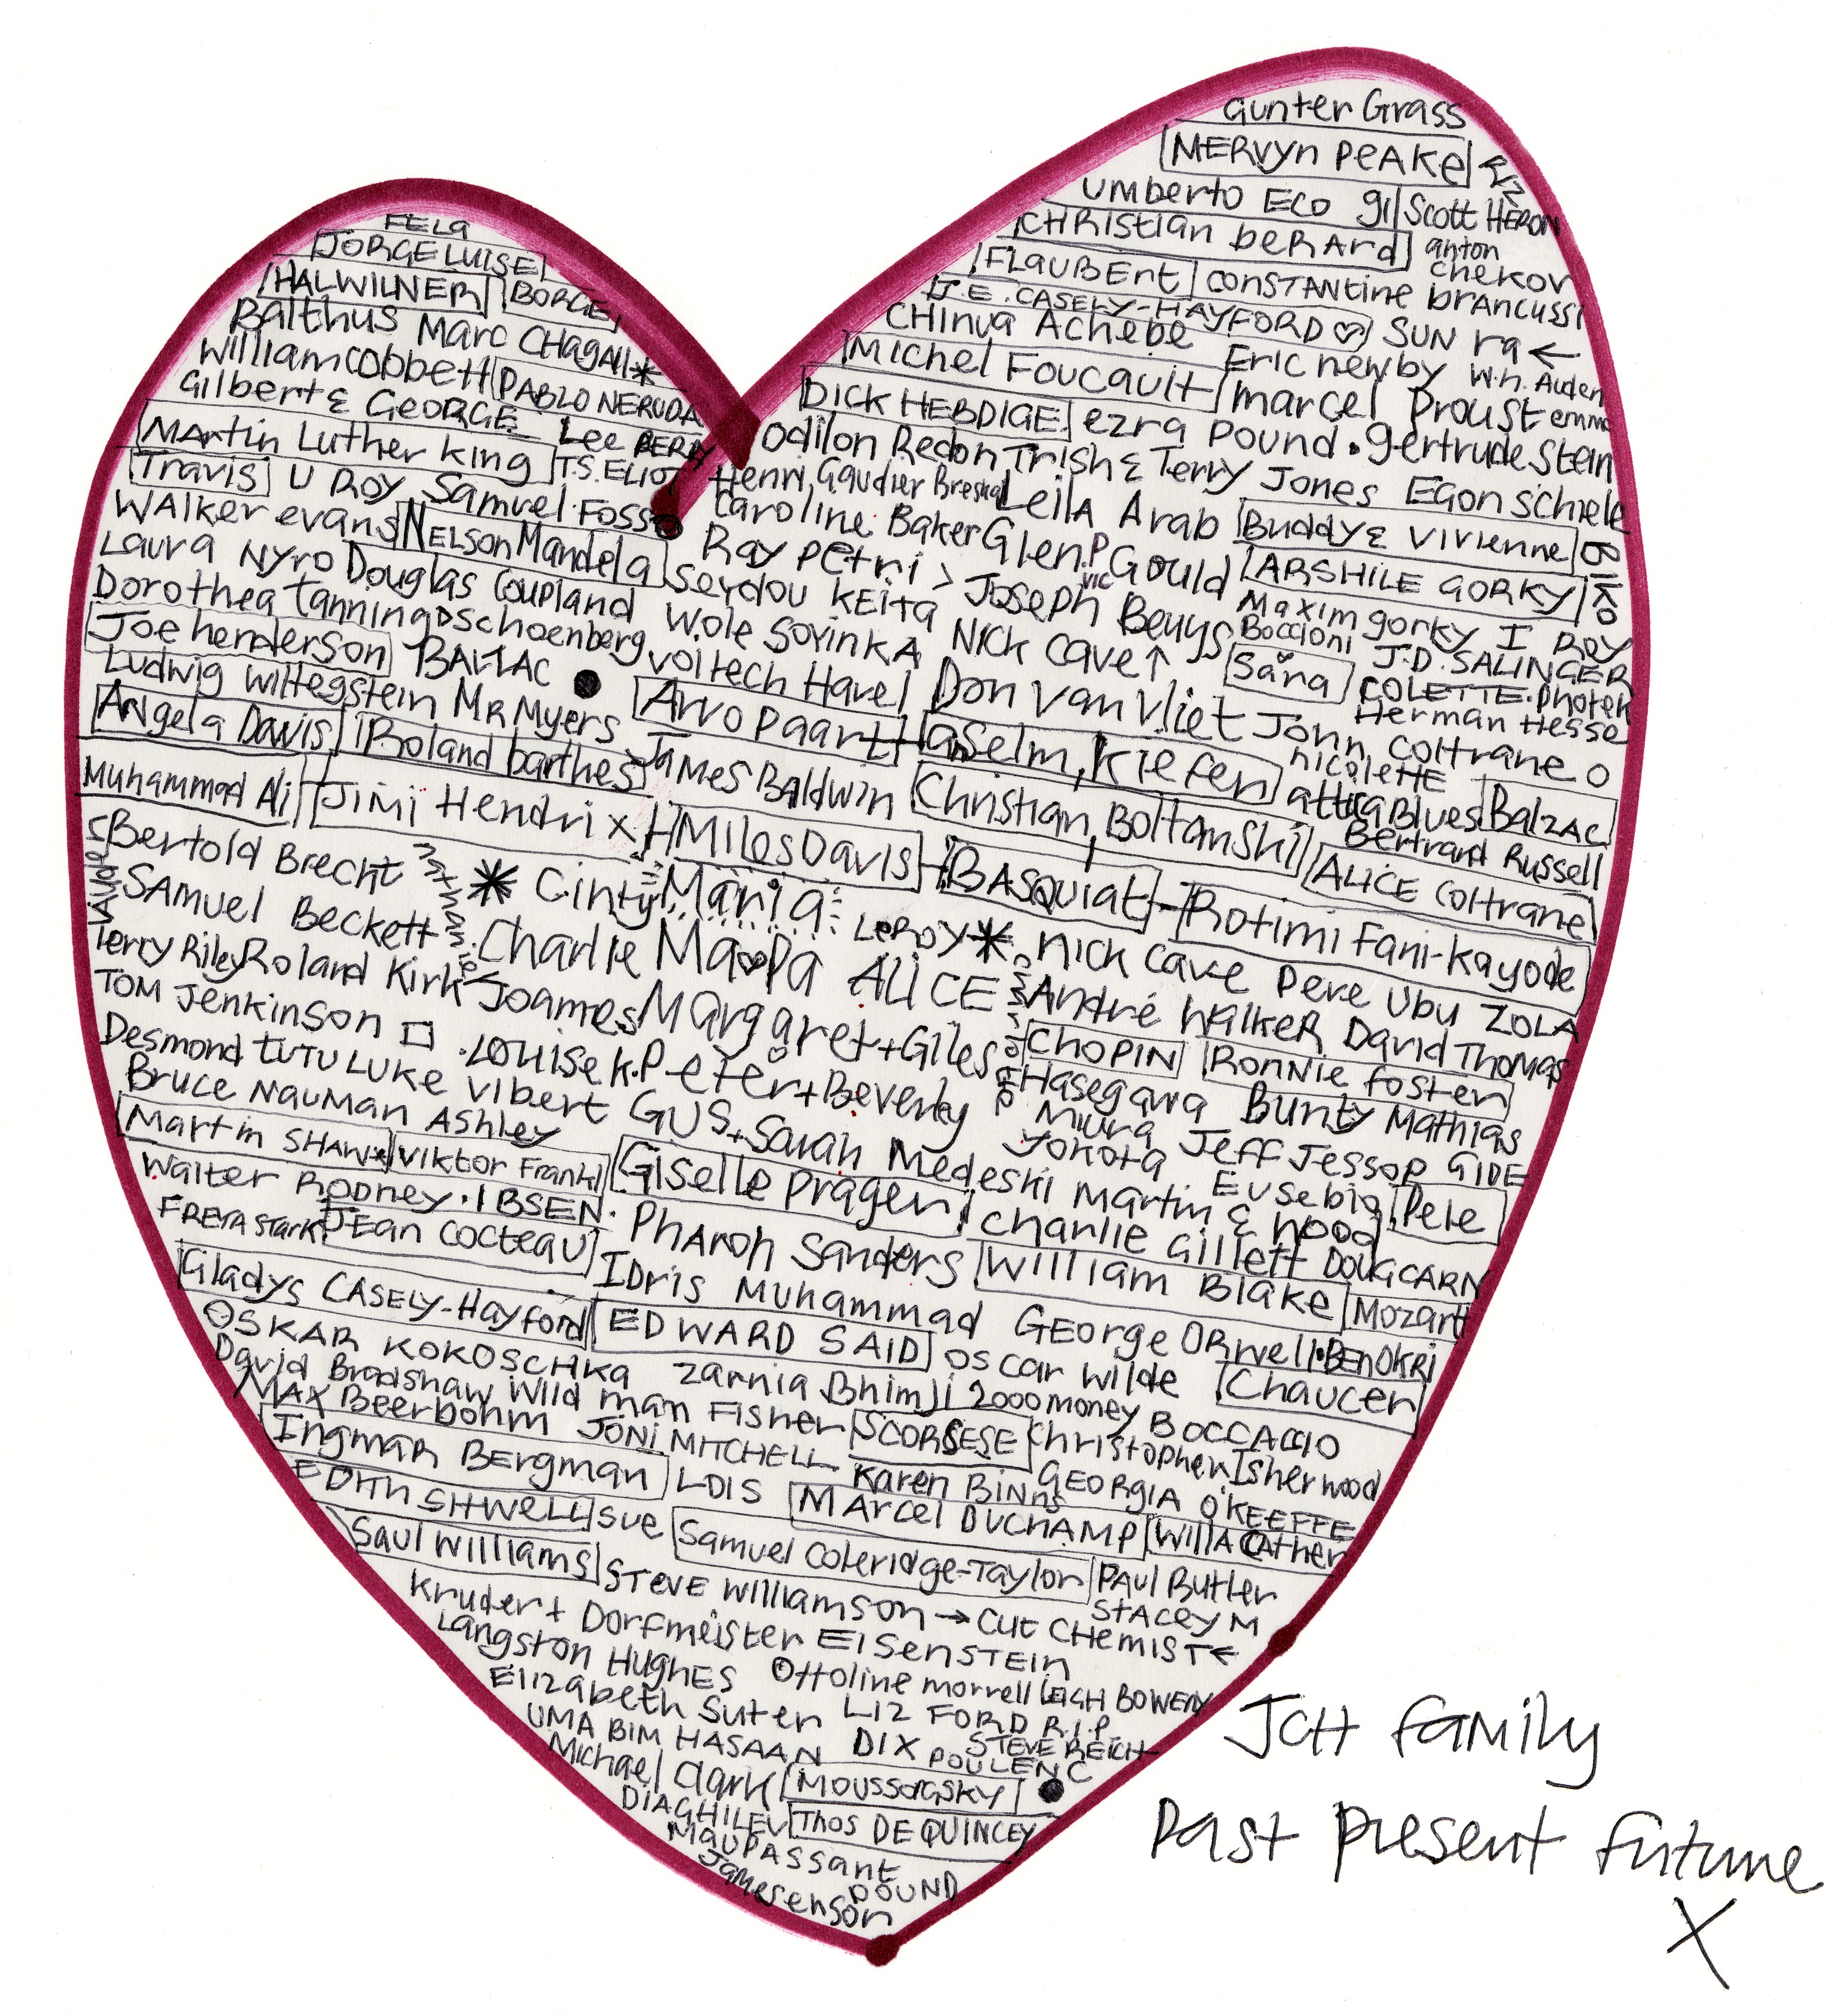 Gunter Grass
MERVYN PEAKE
UMBERTO ECO gil Scott HERON
CHRistian beRARD anton chekov
FLauBErt CONSTANtine brANCUSSI
FELA
JORGE LUISE
BORGE
HALWILNER
J.E. CASELY-HAYFORD ♡ SUN ra ←
Balthus Marc CHagAll*
CHINUA Achebe Eric newby W.H. Auden
William Cobbett PABLO NERUDA
Michel Foucault marcel Proust emma
Gilbert & GEORGE Lee PERRY
DICK HEBDIGE ezra pound . Gertrude Stein
MARtin Luther king T.S. ELIOT
Odilon Redon Trish & Terry Jones EGON SCHIELE
Travis U ROY Samuel Fosso
Henri Gaudier Breska Leila Arab Buddy & VIVIENNE BIKO
WALKER evans NELSON Mandela
Caroline Baker Glen Gould ARSHILE GORKY
Laura NYRO Douglas Coupland Seydou Keita
Ray Petri > Joseph Beuys Maxim gorky I ROY
Boccioni J.D. SALINGER
Dorothea Tanning SchoenbErg Wole SOYINKA NICK CAVE ↑ Sara COLETTE. Photek
Joe henderson BALZAC ● VOITECH Havel Don Van Vliet John Coltrane O
Herman Hesse
Ludwig Wittegstein MR Myers Arvo Paart anselm, KIEFER nicolettE
Angela Davis Roland barthes JaMes BAldwin Christian, BOLTanski attica Blues Balzac
Bertrand Russell
Muhammad Ali JIMI HendriX Miles Davis BASQUIAT - Rotimi Fani-Kayode
ALICE COltrane
Bertold Brecht nathaniel * Cinty Maria LEROY * nick cave Pere Ubu ZOLA
SAMUEL Beckett Charlie Ma♡Pa ALICE André WALKER David Thomas
Terry Riley Roland Kirk Joames Margaret+Giles CHOPIN RONNIE foster
TOM Jenkinson □ .LOUISE K. Peter+Beverley Hasegawa Bunty Mathias
Desmond TUTU LUKE Vibert GUS + Sarah Miura Jeff Jessop GIDE
Yokota
Bruce Nauman Ashley MEDESKI MARTIN & WOOD Eusebio Pele
Martin SHAW* VIKTOR Frankl Giselle Prager Charlie Gillett DOUG CARN
Walter RODNEY . IBSEN . PHAROH Sanders William Blake MozarT
FREYA Stark JEan Cocteau IDris Muhammad GEorge ORwell . BEN OKRI
Gladys CASELY-Hayford EDWARD SAID Oscar Wilde Chaucer
OSKAR KOKOSCHKA Zarnia Bhimji 2000 money BOCCACCIO
David Bradshaw Wild man FISHER SCORSESE Christopher Isherwood
MAX Beerbohm JONi MITCHELL Karen BINNs GEORGIA O'KEEFFE
Ingmar BErgman LOIS MArcel DUCHAMP Willa Cather
EDITH SITWELL SUE Samuel Coleridge-Taylor PAUL Butler
Saul Williams STEVE Williamson → CUT CHEMIST ←
STACEY M
Kruder + Dorfmeister EISENSTEIN
Langston HUGHES Ottoline morrell LEIGH BOWERY
Elizabeth Suter LIZ FORD R.I.P.
UMA BIM HASAAN DIX STEVE REICH
POULENC
Michael Clark MOUSSORGSKY ●
DIAGHILEV THos DE QUINCEY
MAUPASSant
POUND
James enson
JCH family
Past present future
X